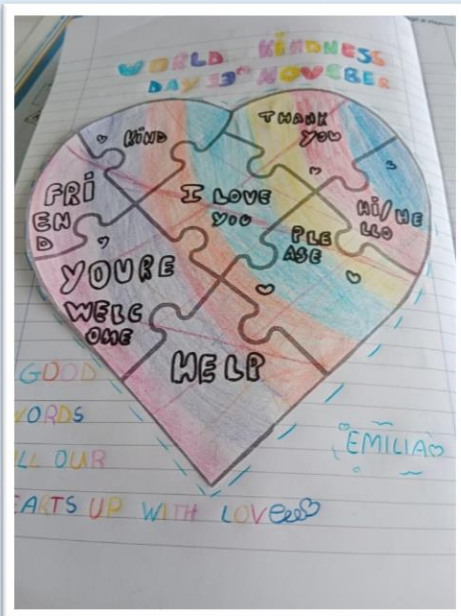 WORLD KINDNESS
DAY 13TH NOVEBER
KIND
THANK
YOU
FRI
EN
D
I LOVE
YOU
HI/HE
LLO
PLE
ASE
YOURE
WELC
OME
HELP
GOOD
ORDS
LL OUR
EARTS UP WITH LOVE
EMILIA